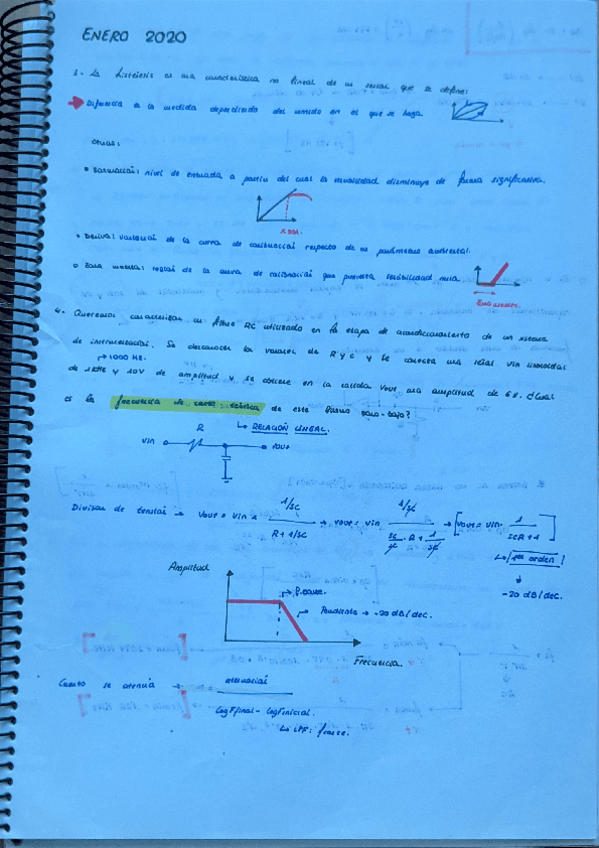 ENERO 2020
3.- La histéresis es una característica no lineal de un sensor que se define:
Diferencia a la medida dependiendo del sentido en el que se haga.
otras:
• Saturación: nivel de entrada a partir del cual la sensibilidad disminuye de forma significativa.
• Deriva: variación de la curva de calibración respecto de un parámetro ambiental.
• Zona muerta: región de la curva de calibración que presenta sensibilidad nula.
Zona muerta.
4.- Queremos caracterizar un filtro RC utilizado en la etapa de acondicionamiento de un sistema
de instrumentación. Se desconocen los valores de R y C y se conecta una señal Vin sinusoidal
→ 1000 Hz.
de 1kHz y 10V de amplitud y se obtiene en la salida Vout, una amplitud de 6V. ¿Cuál
es la frecuencia de corte teórica de este filtro paso-bajo?
R
↳ RELACIÓN LINEAL.
Vin
Vout
Divisor de tensión → Vout = Vin · (1/sC)/(R + 1/sC) → Vout = Vin → [Vout = Vin · 1/(sCR+1)]
↳ 1er orden!
-20 dB/dec.
Amplitud
→ f.corte.
→ Pendiente → -20 dB/dec.
Frecuencia.
Cuanto se atenúa → m = atenuación
Log Ffinal - Log Finicial.
↳ LPF: fcorte.